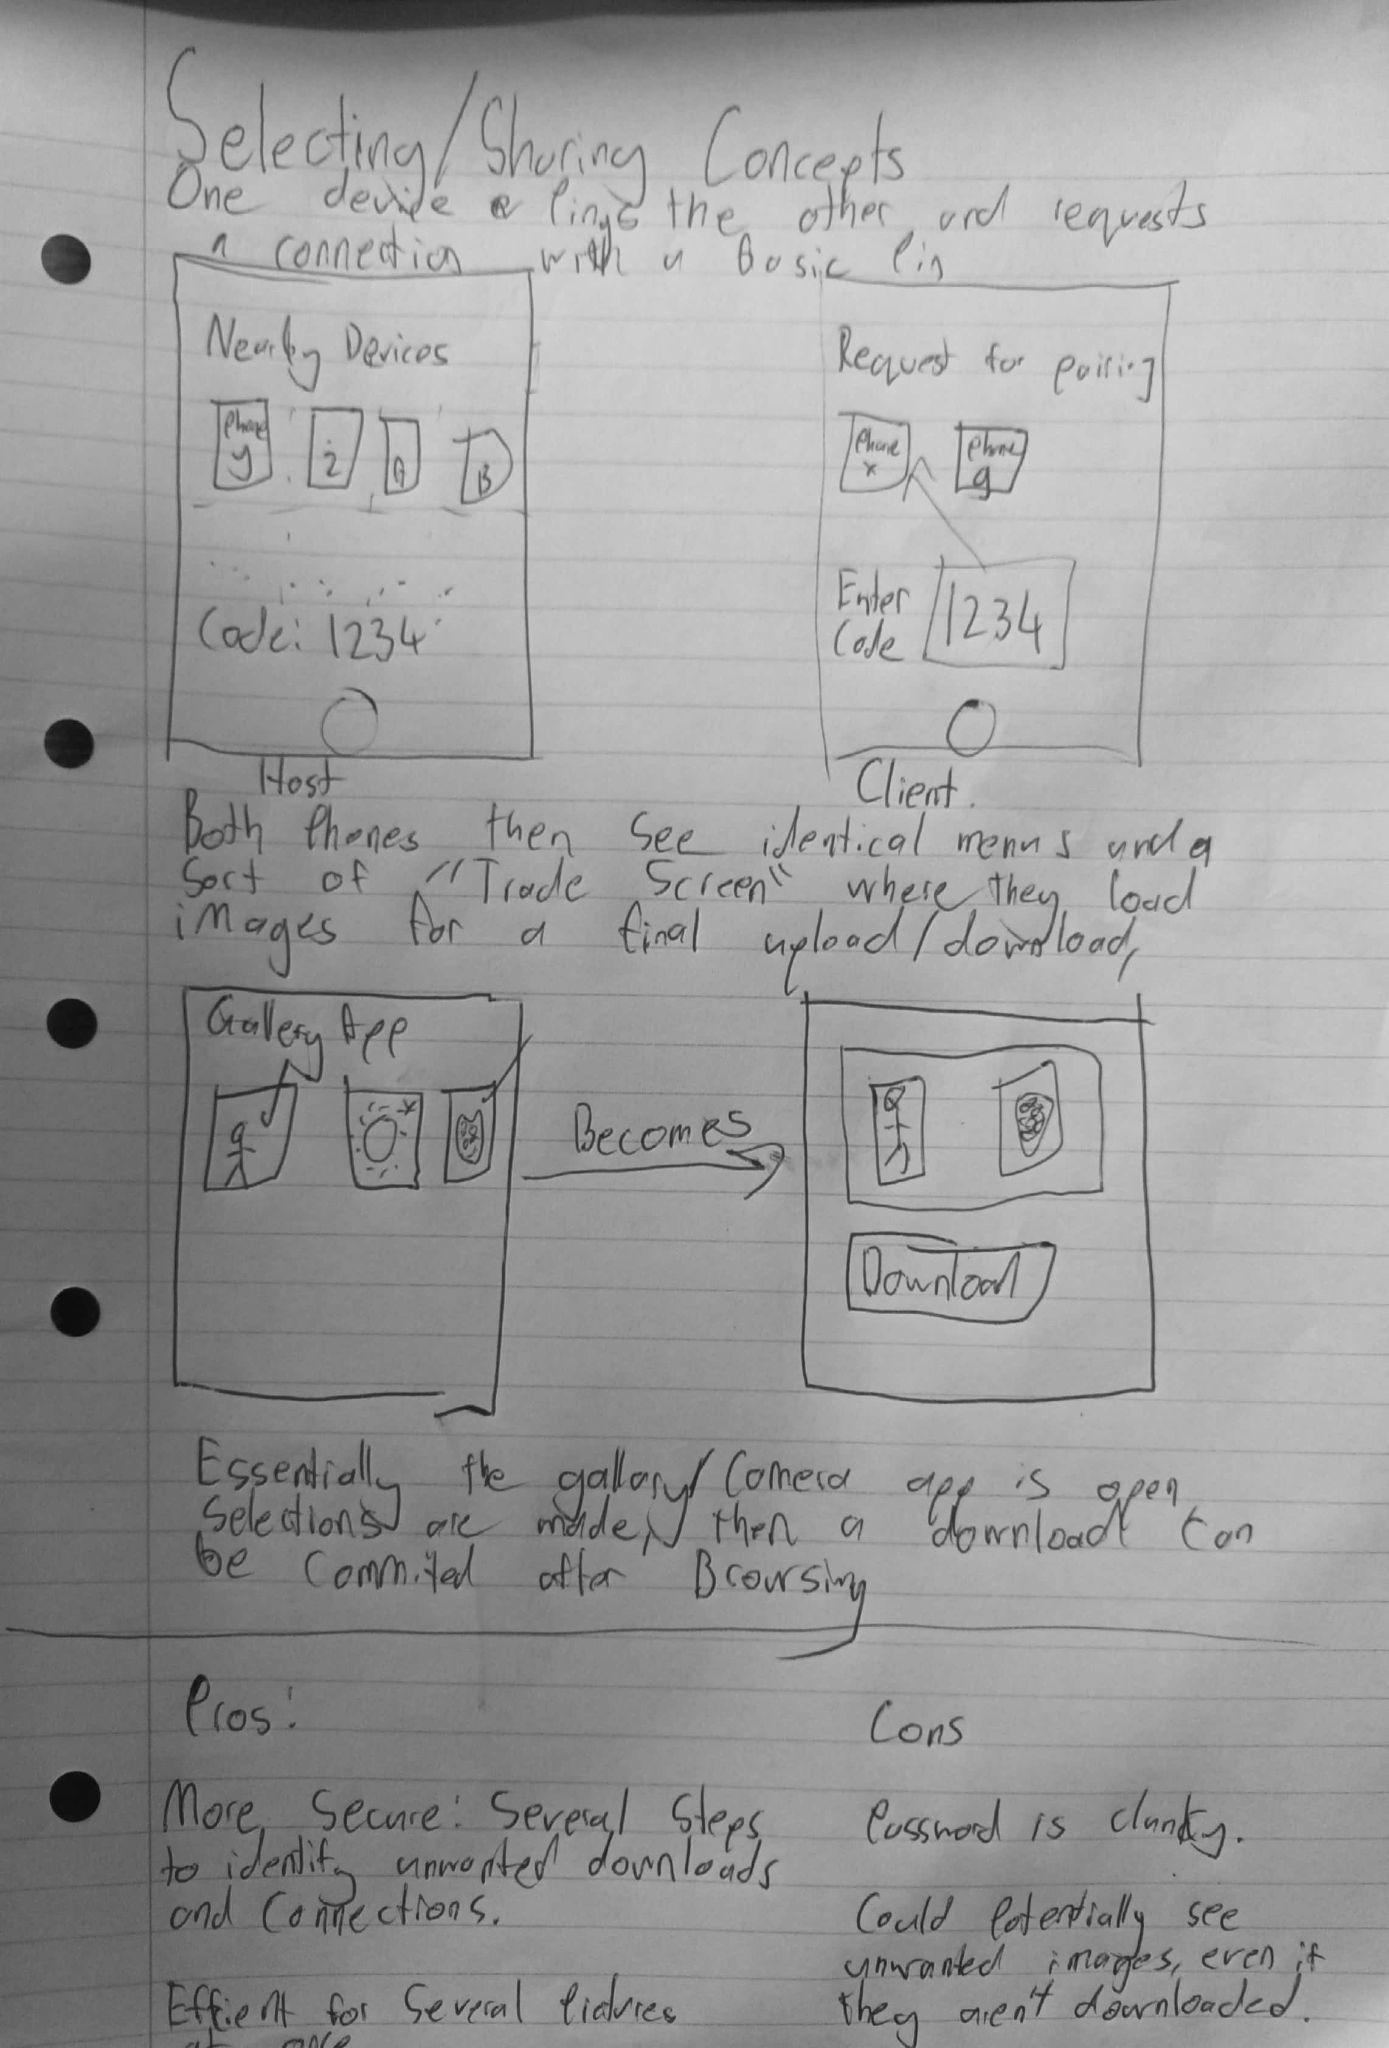 Selecting/Sharing Concepts
One device pings the other and requests
a connection with a Basic Pin
Nearby Devices
Phone
y
z
A
B
Code: 1234
Host
Request for pairing
Phone
x
Phone
g
Enter
Code
1234
Client.
Both Phones then see identical menus and a
Sort of "Trade Screen" where they load
images for a final upload/download,
Gallery App
Becomes
Download
Essentially the gallary/Camera app is open
selections are made, then a download can
be Commited after Browsing
Pros:
More Secure: Several Steps
to identify unwanted downloads
and Connections.
Effient for Several Pictures
at once
Cons
Password is clunky.
Could Potentially see
unwanted images, even if
they aren't downloaded.